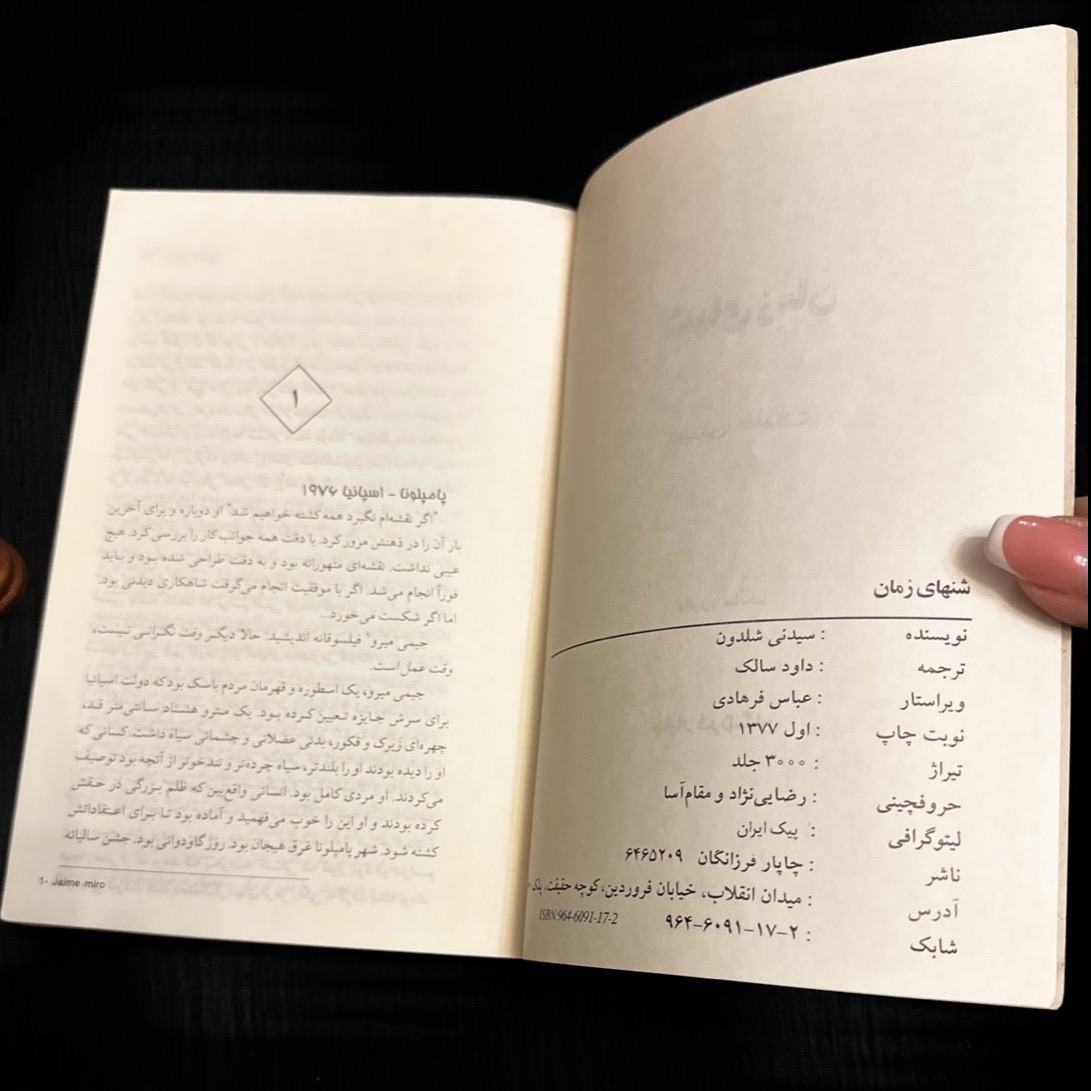 شنهای زمان
نویسنده : سیدنی شلدون
ترجمه : داود سالک
ویراستار : عباس فرهادی
نوبت چاپ : اول ۱۳۷۷
تیراژ : ۳۰۰۰ جلد
حروفچینی : رضایی‌نژاد و مقام‌آسا
لیتوگرافی : پیک ایران
ناشر : چاپار فرزانگان ۶۴۶۵۲۰۹
آدرس : میدان انقلاب، خیابان فروردین، کوچه حقیقت، پلاک
شابک : ۹۶۴-۶۰۹۱-۱۷-۲ ISBN:964-6091-17-2
۱
پامپلونا - اسپانیا ۱۹۷۶
"اگر نقشه‌ام نگیرد همه کشته خواهیم شد" او دوباره و برای آخرین
بار آن را در ذهنش مرور کرد. با دقت همه جوانب کار را بررسی کرد. هیچ
عیبی نداشت. نقشه‌ای متهورانه بود و به دقت طراحی شده بود و باید
فوراً انجام می‌شد. اگر با موفقیت انجام می‌گرفت شاهکاری دیدنی بود.
اما اگر شکست می‌خورد...
جیمی میرو۱ فیلسوفانه اندیشید: حالا دیگر وقت نگرانی نیست،
وقت عمل است.
جیمی میرو، یک اسطوره و قهرمان مردم باسک بود که دولت اسپانیا
برای سرش جایزه تعیین کرده بود. یک مترو هشتاد سانتی‌متر قد،
چهره‌ای زیرک و فکور، بدنی عضلانی و چشمانی سیاه داشت. کسانی که
او را دیده بودند او را بلندتر، سیاه چرده‌تر و تندخوتر از آنچه بود توصیف
می‌کردند. او مردی کامل بود. انسانی واقع‌بین که ظلم بزرگی در حقش
کرده بودند و او این را خوب می‌فهمید و آماده بود تا برای اعتقاداتش
کشته شود. شهر پامپلونا غرق هیجان بود. روز گاودوانی بود. جشن سالیانه
1- Jaime miro